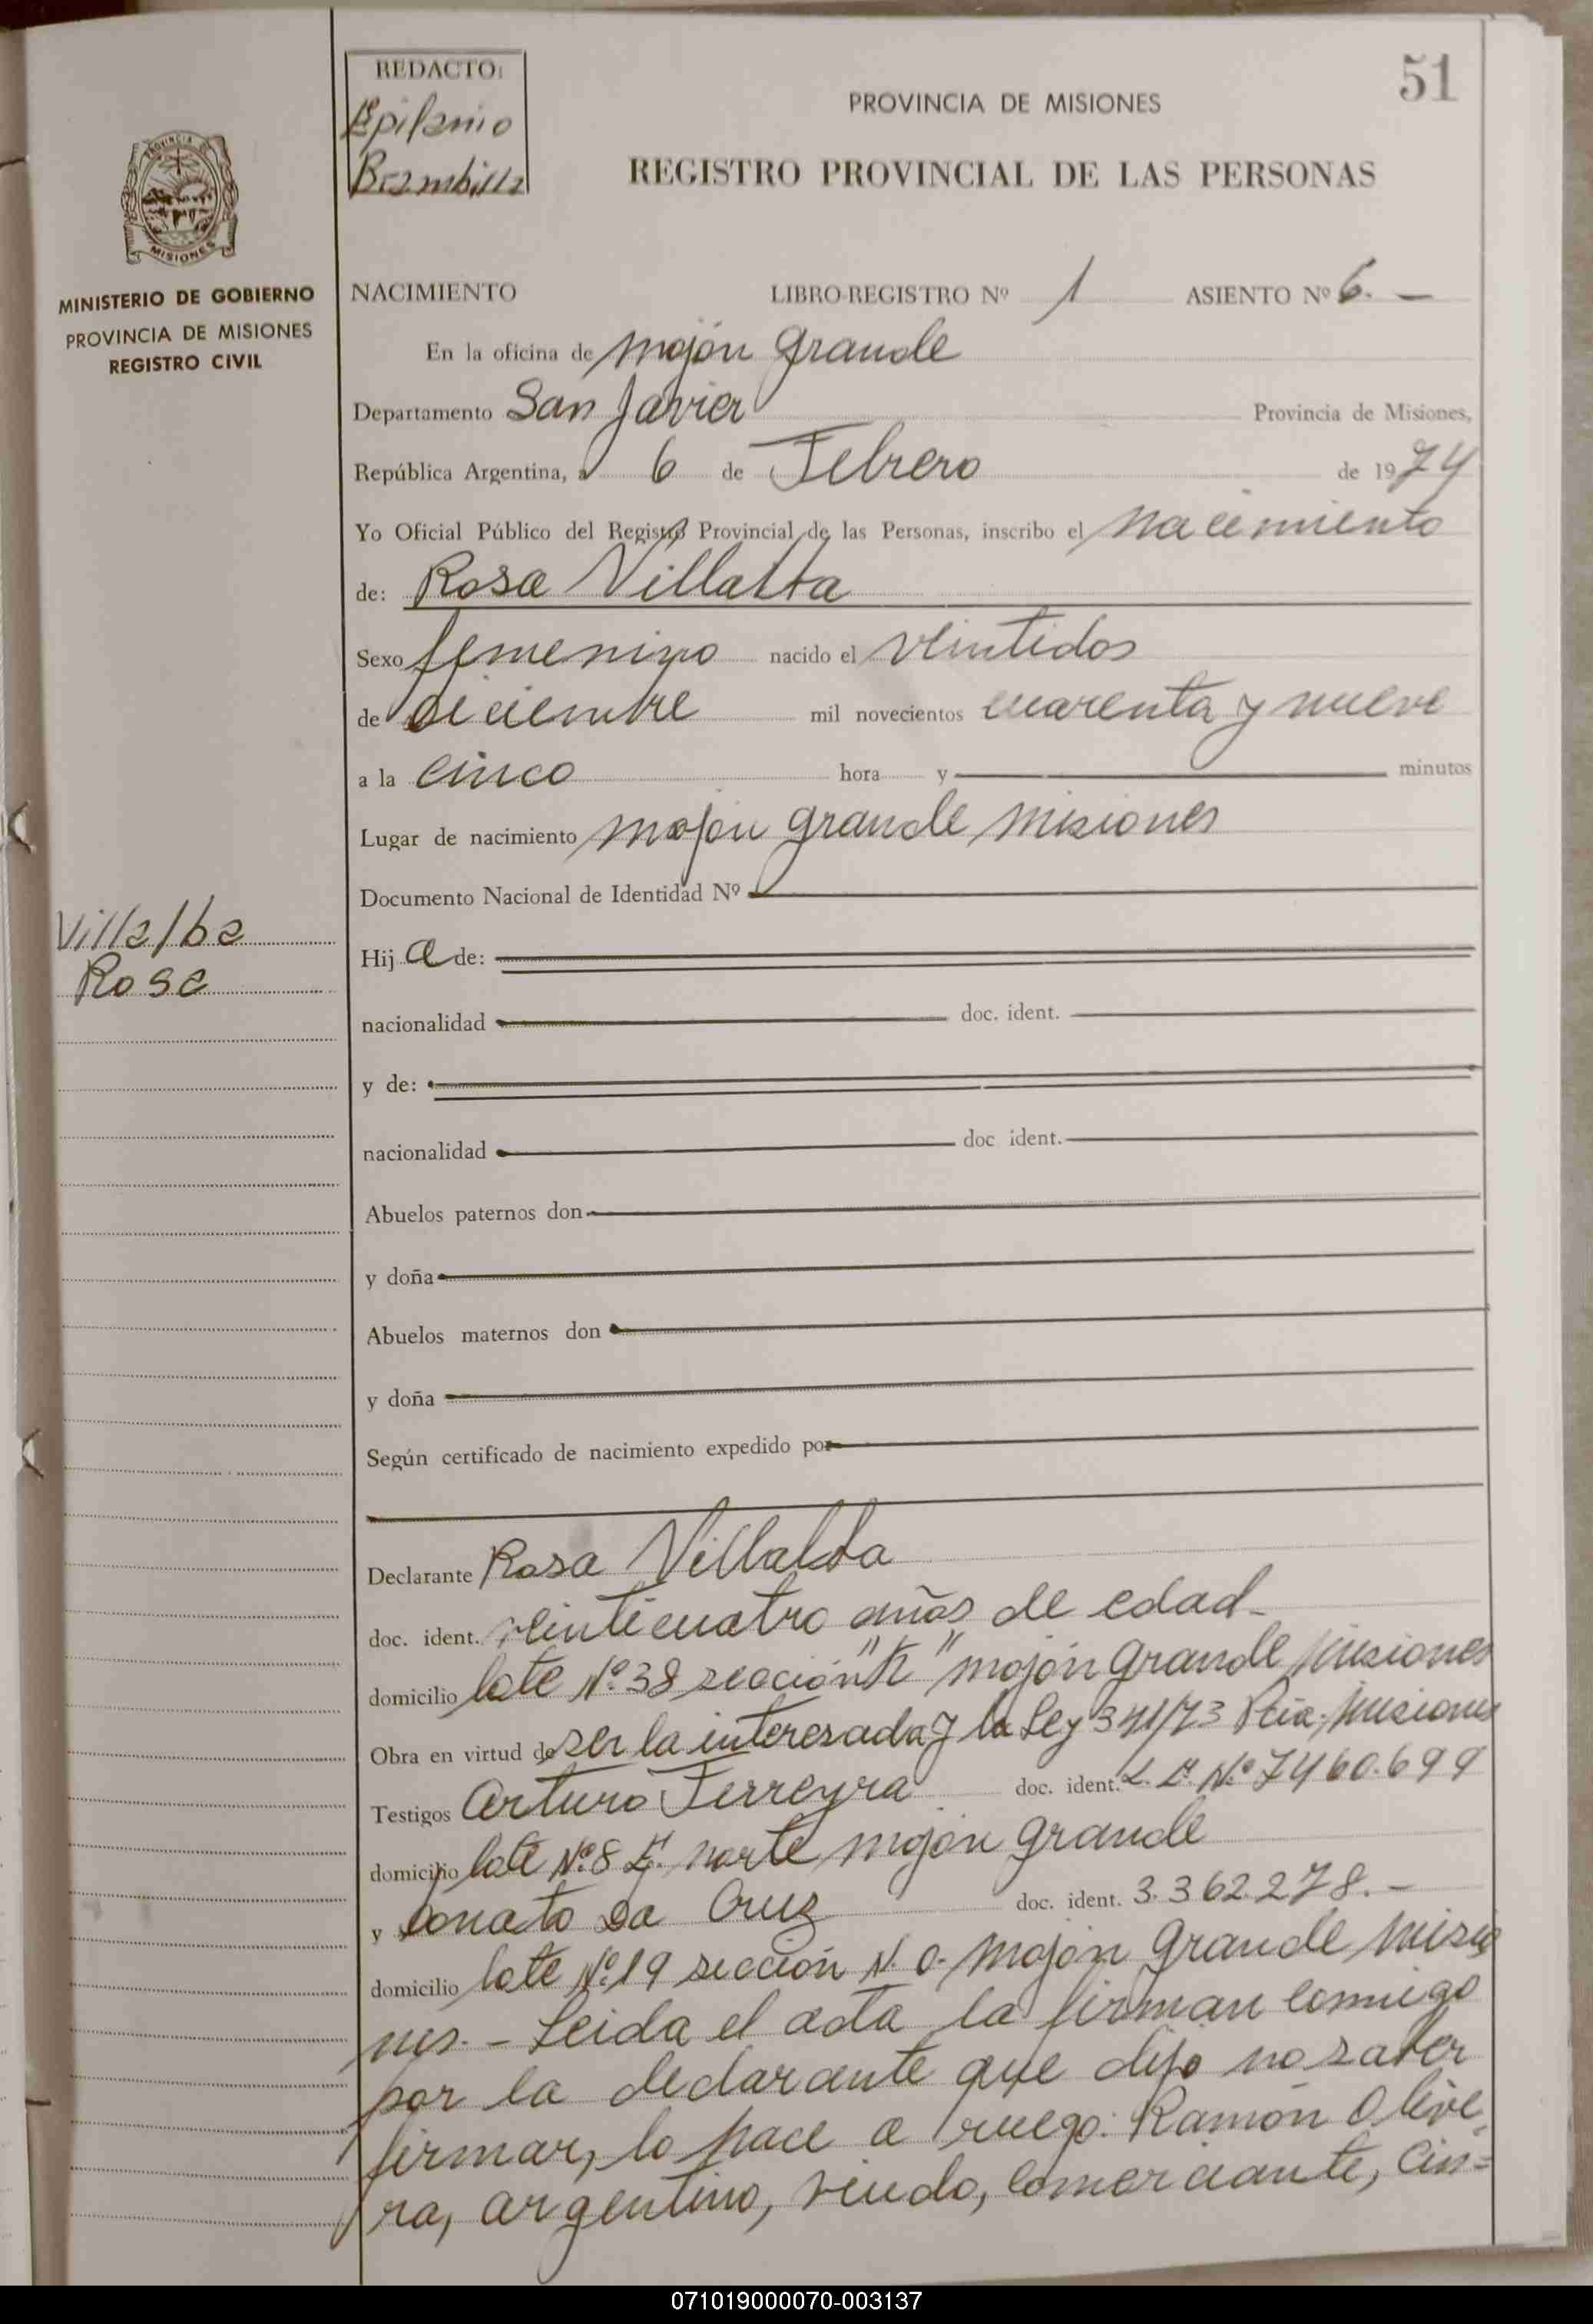 51
REDACTO:
Epifanio
Brambilla
PROVINCIA DE MISIONES
REGISTRO PROVINCIAL DE LAS PERSONAS
PROVINCIA DE
MISIONES
MINISTERIO DE GOBIERNO
PROVINCIA DE MISIONES
REGISTRO CIVIL
NACIMIENTO LIBRO-REGISTRO Nº 1 ASIENTO Nº 6. —
En la oficina de mojón grande
Departamento San Javier Provincia de Misiones,
República Argentina, a 6 de Febrero de 1974
Yo Oficial Público del Registro Provincial de las Personas, inscribo el nacimiento
de: Rosa Villalba
Sexo femenino nacido el veintidos
de diciembre mil novecientos cuarenta y nueve
a la cinco hora y minutos
Lugar de nacimiento mojón grande misiones
Documento Nacional de Identidad Nº
Villalba
Rosa
Hij a de:
nacionalidad doc. ident.
y de:
nacionalidad doc ident.
Abuelos paternos don
y doña
Abuelos maternos don
y doña
Según certificado de nacimiento expedido por
Declarante Rosa Villalba
doc. ident. veinticuatro años de edad-
domicilio lote Nº 38 sección "K" mojón grande misiones
Obra en virtud de ser la interesada y la Ley 341/73 Pcia. misiones
Testigos Arturo Ferreyra doc. ident. L. E. Nº 7460.699
domicilio lote Nº 8 norte mojón grande
y Donato Da Cruz doc. ident. 3.362.278.-
domicilio lote Nº 19 sección N. O. mojón grande misio
nes.- Leida el acta la firman comigo
por la declarante que dijo no saber
firmar, lo hace a ruego: Ramón Olive
ra, argentino, viudo, comerciante, cin=
071019000070-003137